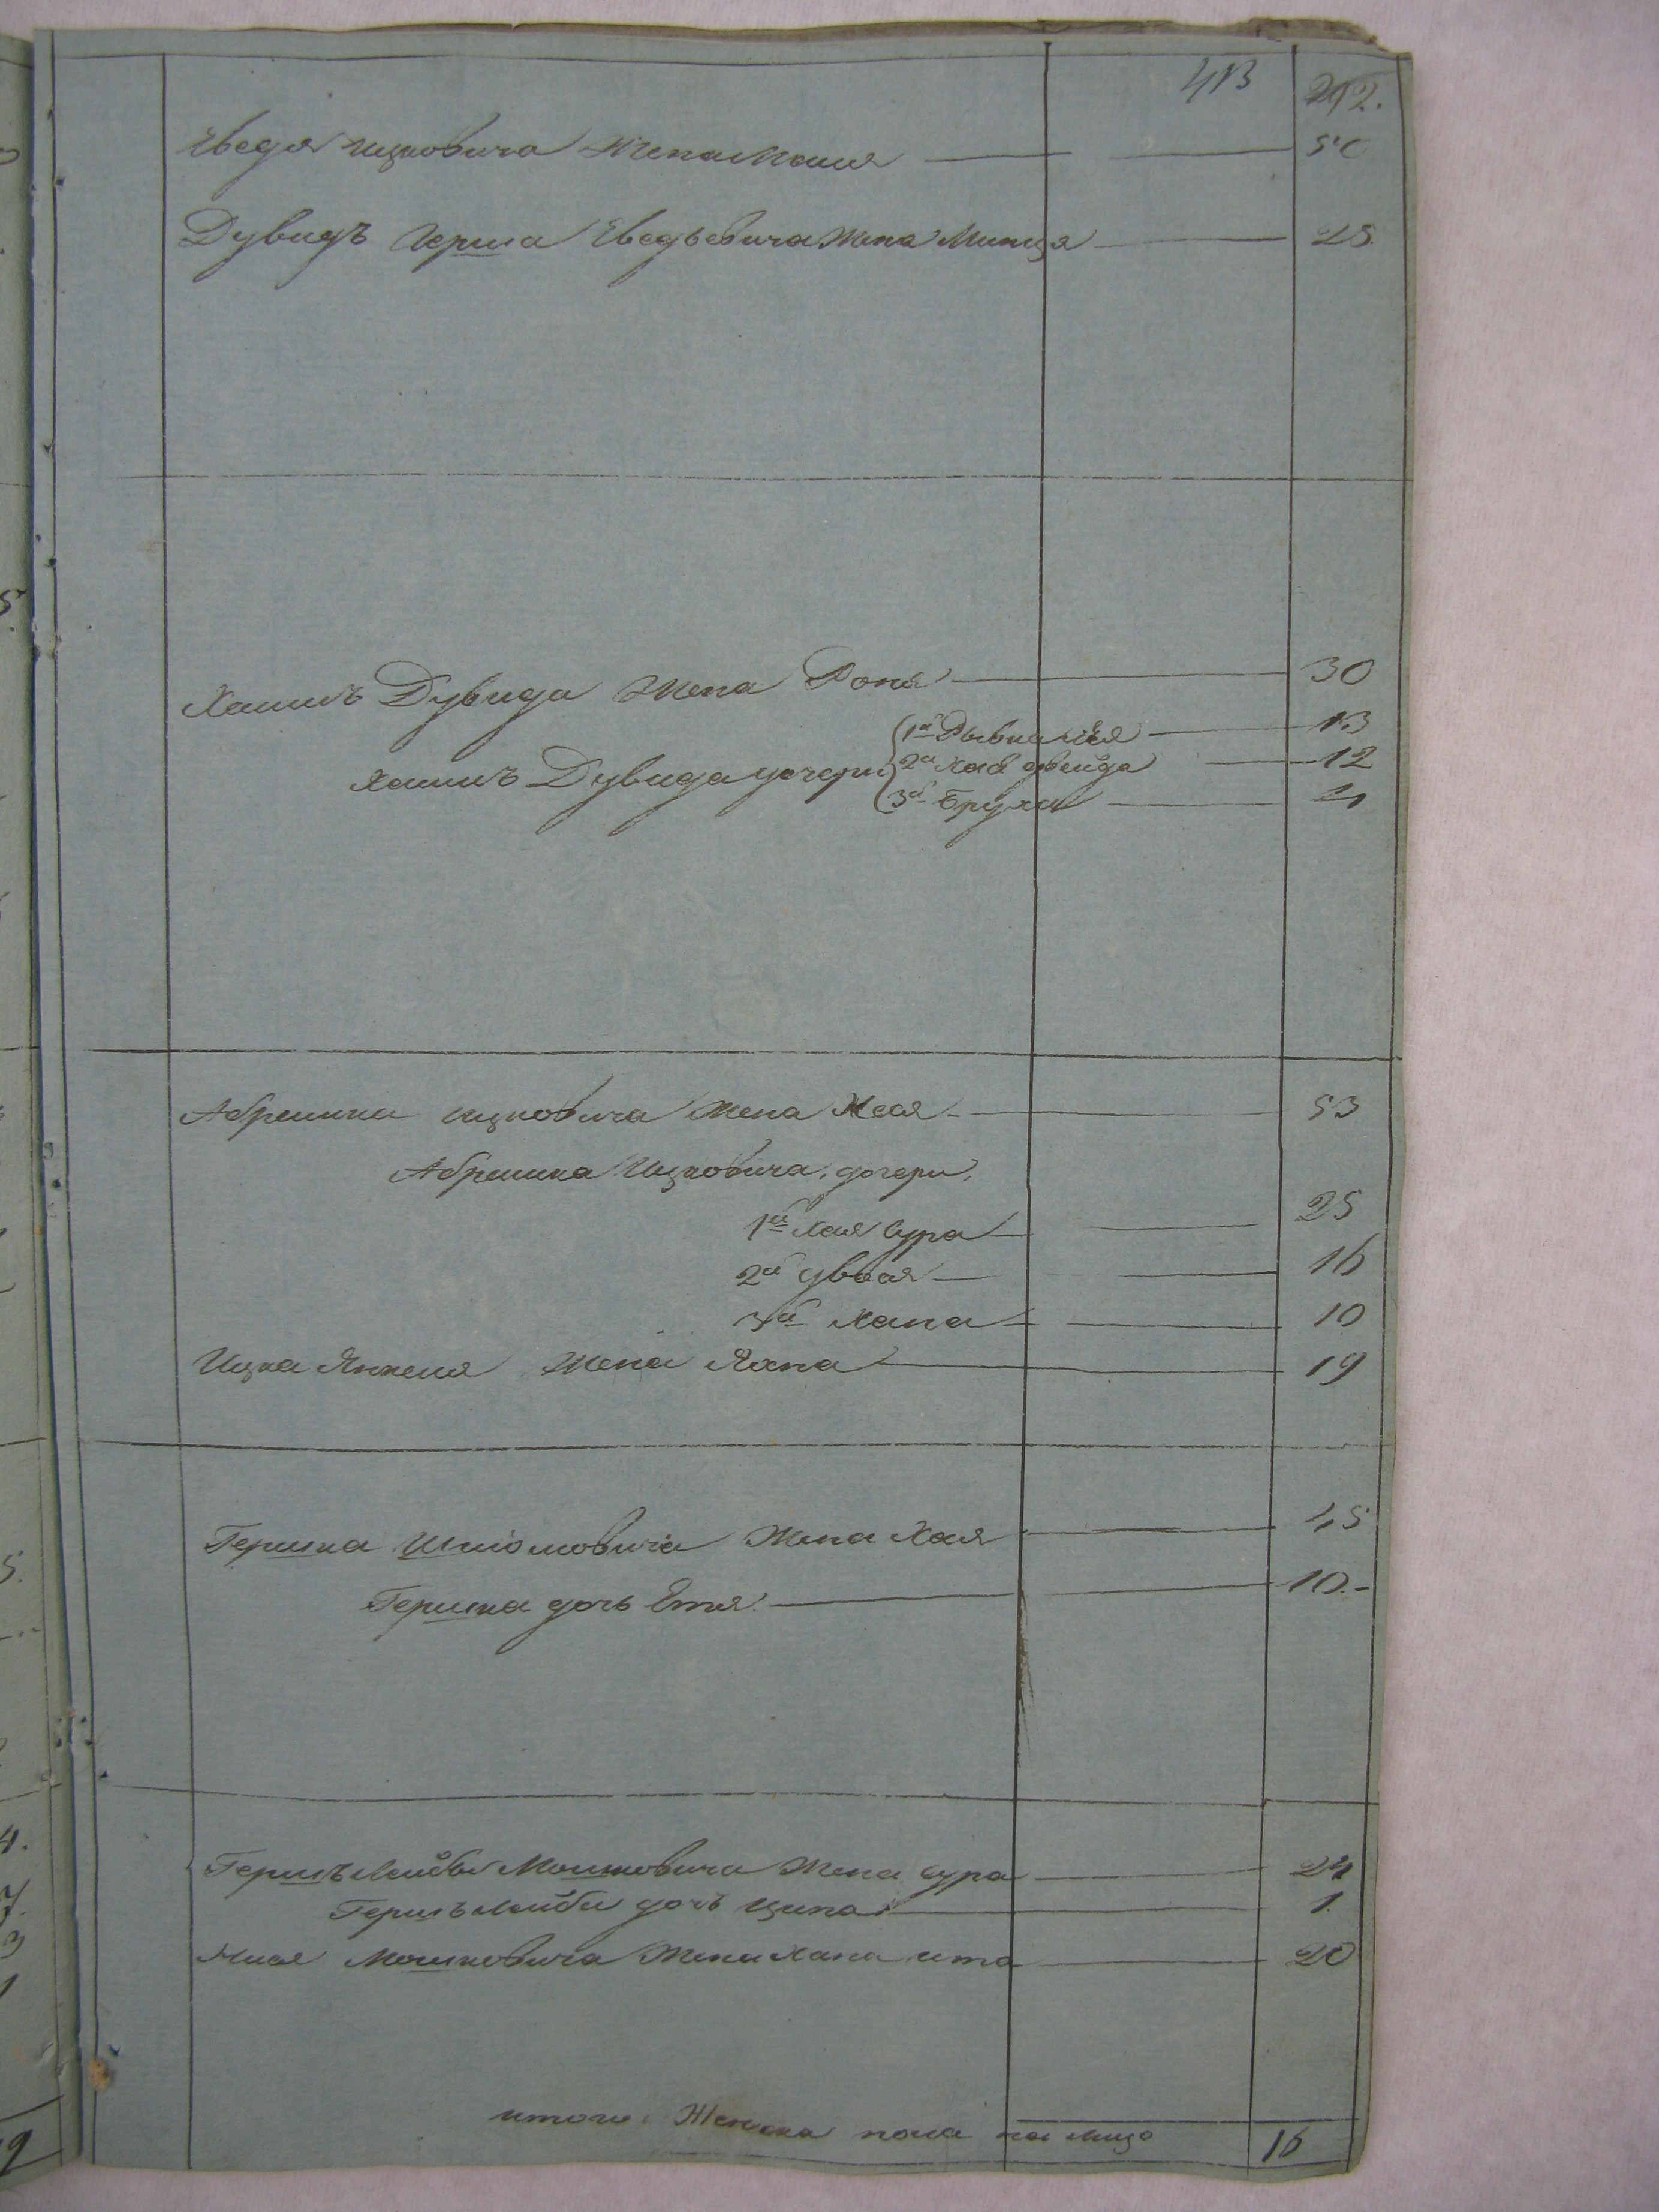 413
Еведя Ицковича жена Маля 50
Дувидъ Герша Еведьевича жена Минця 25
Хаимъ Дувида жена Роня 30
1я Рывка лея 13
Хаимъ Дувида дочери 2я Хая двейда 12
3я Бруха 4
Абрамка Ицковича жена Хая 53
Абрамка Ицковича дочери
1я Хая Сура 25
2я двоя 16
3я Хана 10
Ицка Янкеля жена Яхна 19
Гершка Шліомовича жена Хая 45
Гершка дочь Етя 10.
Гершъ Лейбы Мошковича жена Сура 24
Гершъ Лейбы дочь Ципа 1.
Мошковича жена Хана ита 20
итого Женска пола на лицо 16